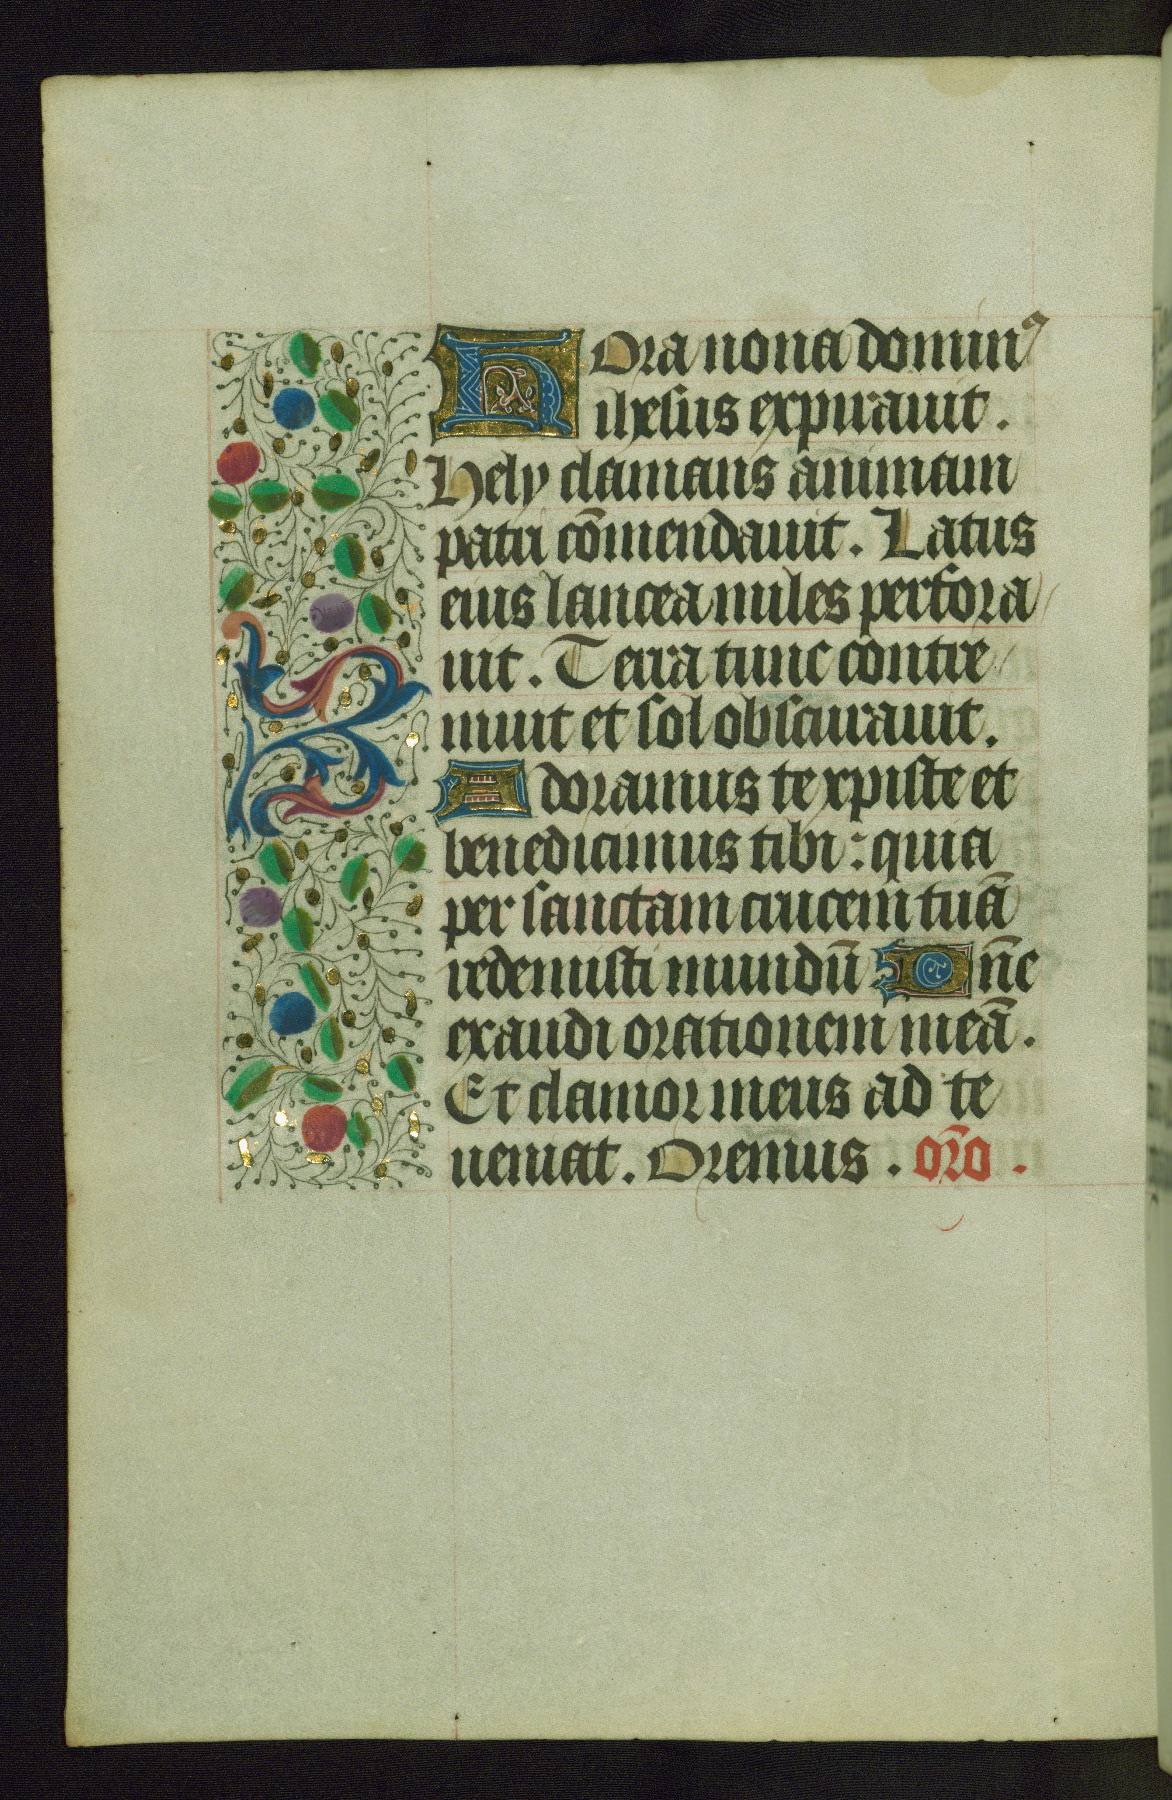 Hora nona dominꝰ
ihesus expirauit.
Hely clamans animam
patri cōmendauit. Latus
eius lancea miles perfora
uit. Terra tunc contre
muit et sol obscurauit.
Adoramus te xpiste et
benedicimus tibi: quia
per sanctam crucem tuā
redemisti mundū Dn̄e
exaudi orationem meā.
Et clamor meus ad te
ueniat. Oremus. or̄o.